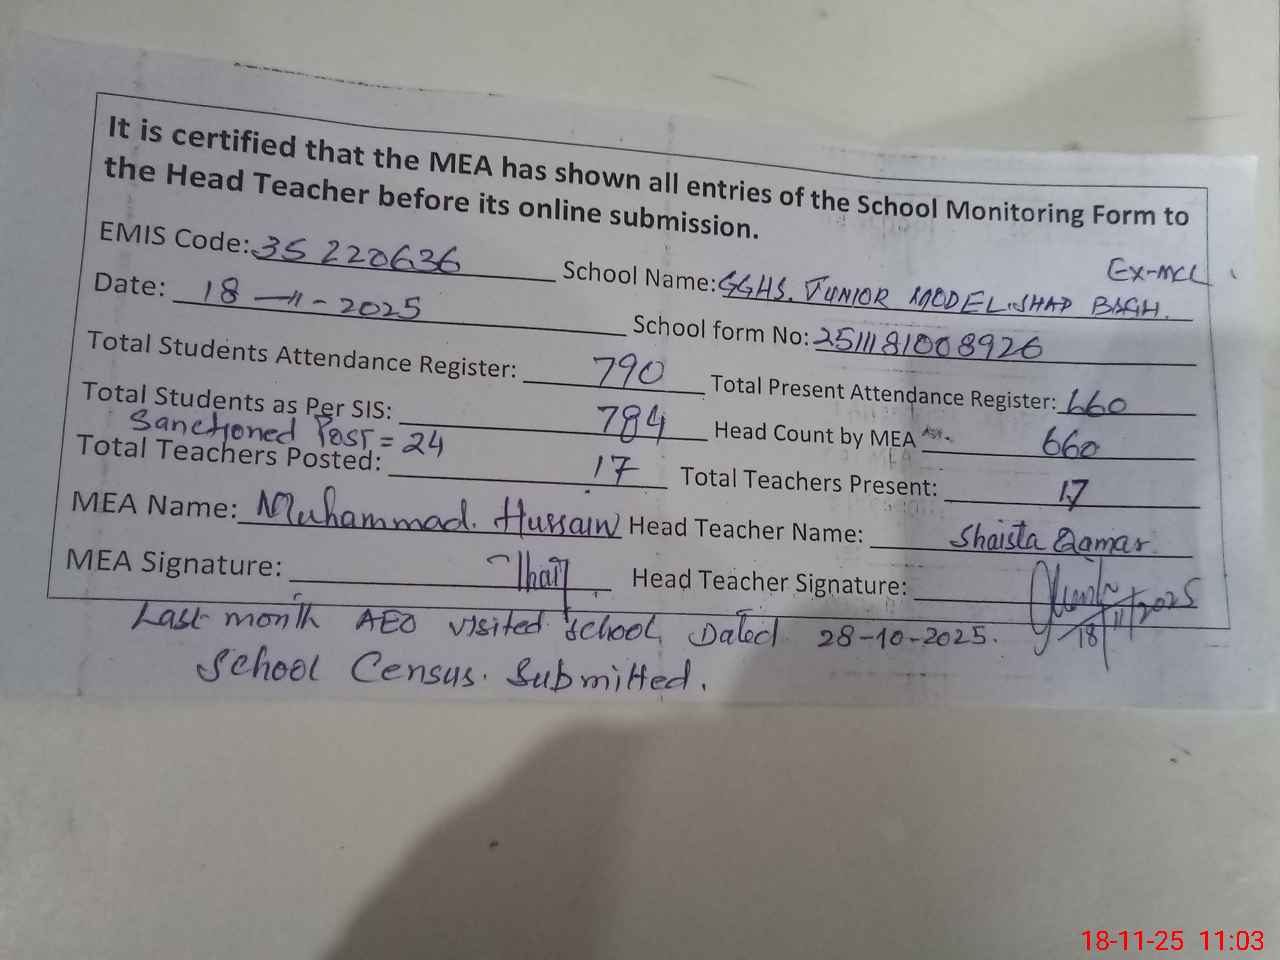 It is certified that the MEA has shown all entries of the School Monitoring Form to
the Head Teacher before its online submission.
EMIS Code: 35220636 School Name: GGHS. JUNIOR MODEL. SHAD BAGH. EX-MCL
Date: 18-11-2025 School form No: 2511181008926
Total Students Attendance Register: 790 Total Present Attendance Register: 660
Total Students as Per SIS: 784 Head Count by MEA 660
Sanctioned Post = 24
Total Teachers Posted: 17 Total Teachers Present: 17
MEA Name: Muhammad. Hussain Head Teacher Name: Shaista Qamar
MEA Signature: Head Teacher Signature: 18/11/2025
Last month AEO visited school Dated 28-10-2025.
School Census. Submitted.
18-11-25 11:03